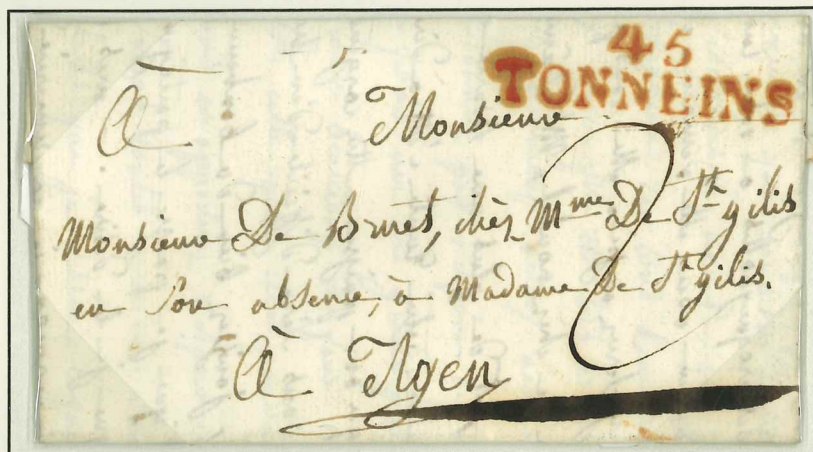 45
TONNEINS
À Monsieur
2
Monsieur De Brues, chèz Mme De St gilis
en son absence, à Madame De St gilis.
À Agen